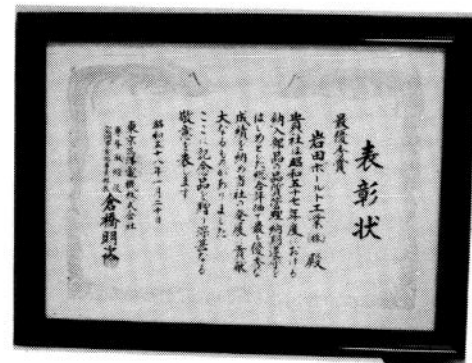 表彰状
最優秀賞
岩田ボールト工業(株)殿
貴社は昭和五十七年度における
納入部品の品質管理納期遵守を
はじめとした総合評価で最も優秀な
成績を納め当社の発展に貢献
大なるものがありました
ここに記念品を贈り深甚なる
敬意を表します
昭和五十八年一月二十日
東京三洋電機株式会社
倉橋明次